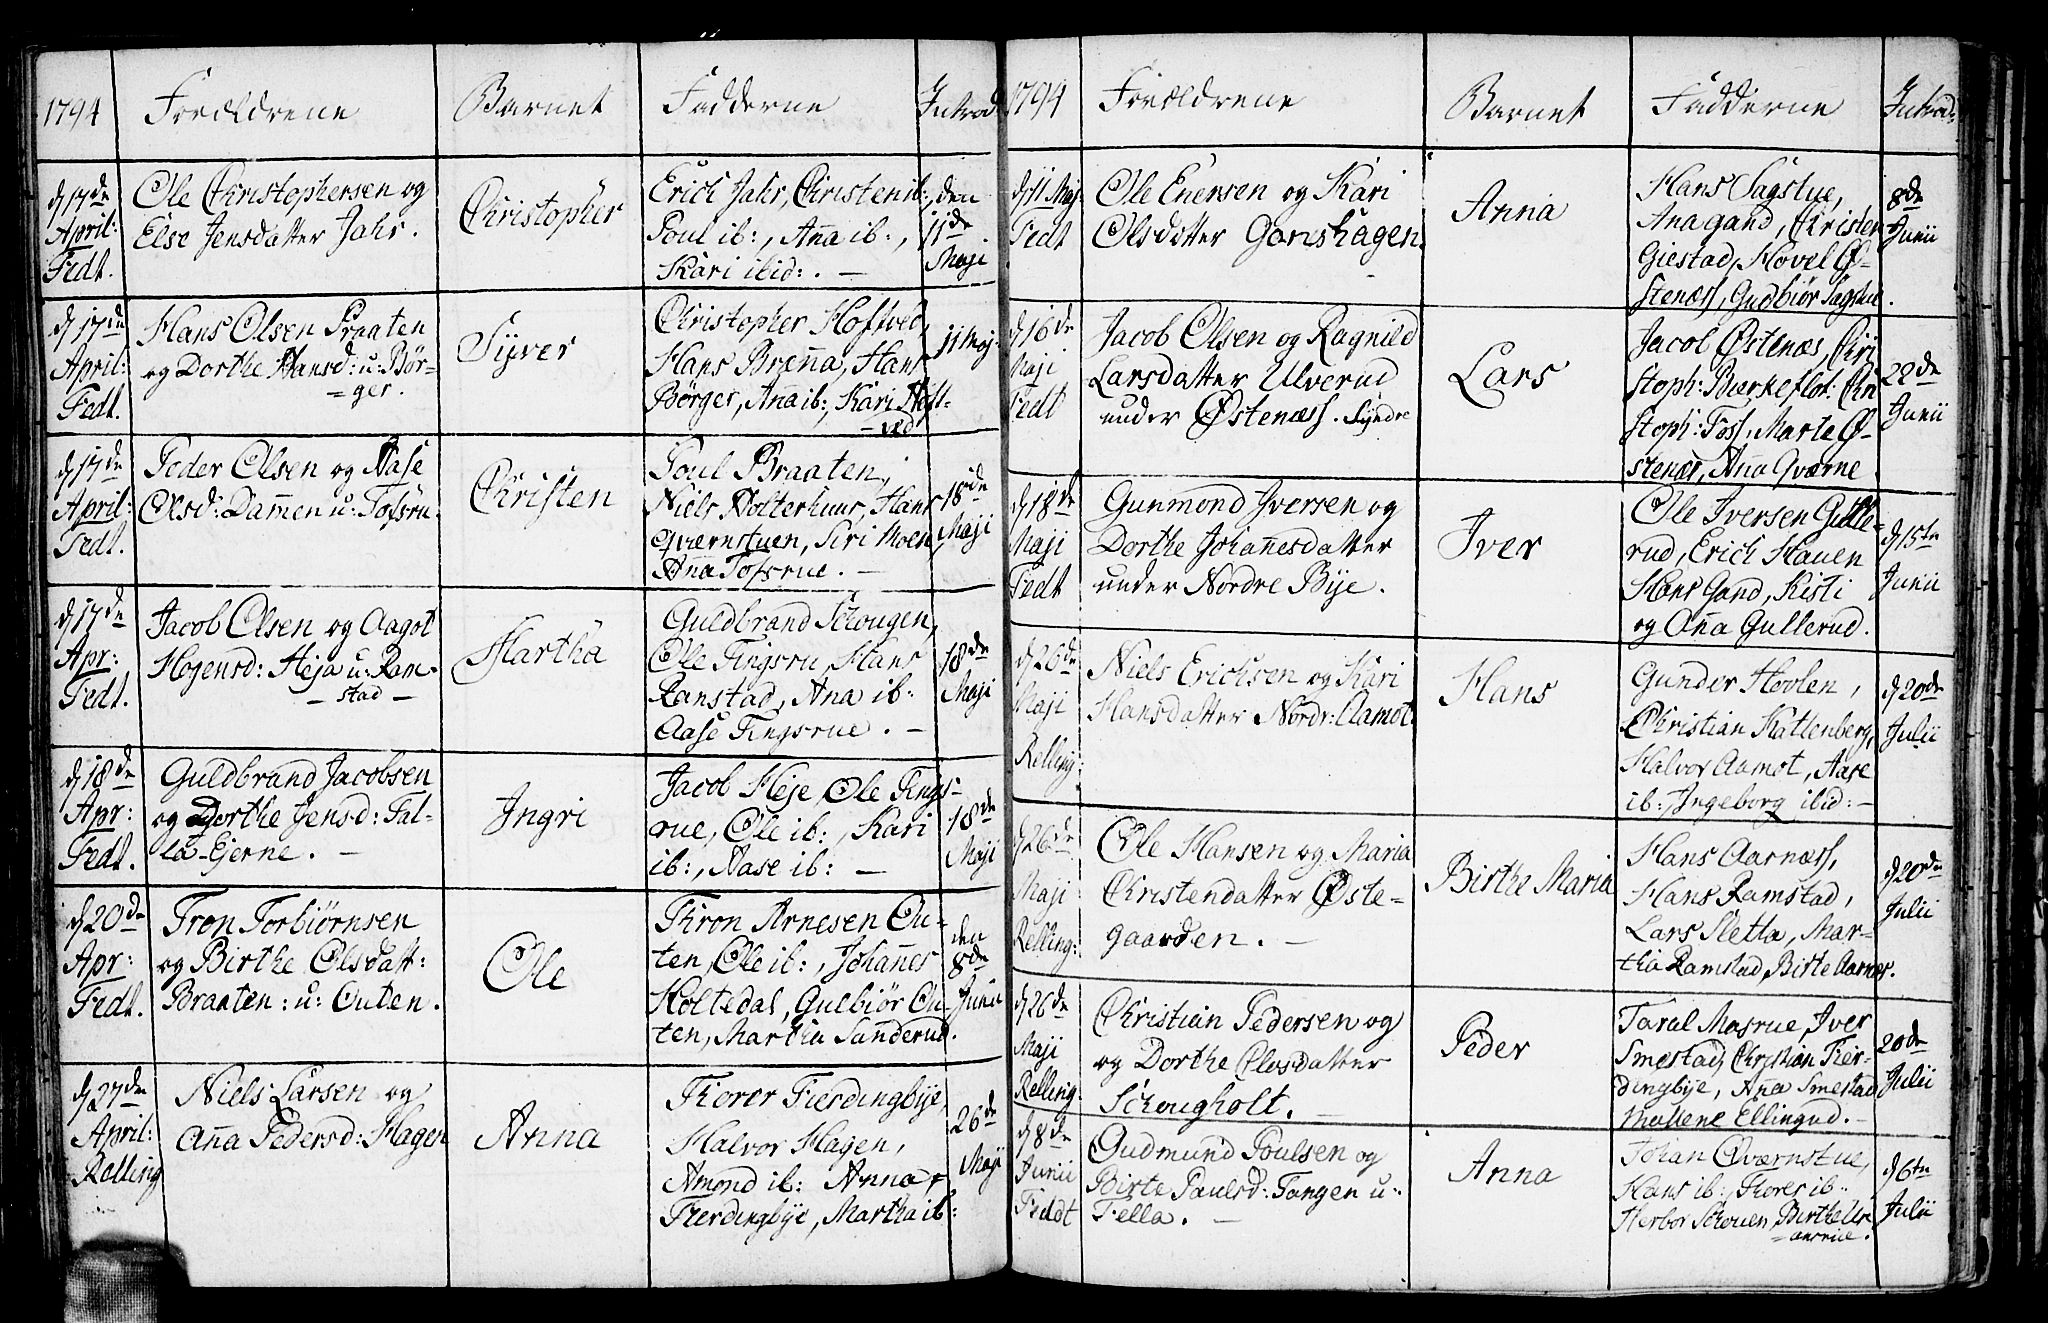 1794
Forældrene
Barnet
Fadderne
Introd:
d 17de
April:
Fedt.
Ole Christophersen og
Else Jensdatter Jahr.
Christopher
Erich Jahr, Christen ib:,
Poul ib:, Aña ib:,
Kari ibid:. —
den
11de
Maji
d 17de
April:
Fedt.
Hans Olsen Praaten
og Dorthe Hansd: u: Bör-
=ger.
Syver
Christopher Hoftved,
Hans Breña, Hans
Börger, Aña ib:, Kari Hoft-
-ved
11 Maj.
d 17de
April:
Fedt.
Peder Olsen og Aase
Olsd: Dam̃en u: Tofsru.
Christen
Poul Braaten,
Niels Holterhuus, Hans
Qværnstuen, Siri Moen
Ana Tofsrue. —
18de
Maji
d 17de
Apr:
Fedt.
Jacob Olsen og Aagot
Hogensd: Heja u: Ram-
-stad —
Hartha
Guldbrand Schougen,
Ole Tingsru, Hans
Ramstad, Ana ib:
Aase Tingsrue. —
18de
Maji
d 18de
Apr:
Fedt.
Guldbrand Jacobsen
og Dorthe Jensd: Fal-
la-Ejerne. —
Ingri
Jacob Heje, Ole Tings-
rue, Ole ib:, Kari
ib:, Aase ib: —
18de
Maji
d 20de
Apr:
Fedt.
Tron Torbiörnsen
og Birthe Olsdatt:
Braaten: u: Outen.
Ole
Thron Arnesen Ou-
ten, Ole ib:, Johañes
Holtedal, Gulbiör Ou-
ten, Martha Sanderud.
den
8de
Junii
d 27de
April:
Relling
Niels Larsen og
Aña Pedersd: Hagen
Anna
Thorer Fierdingbye,
Halvor Hagen,
Amond ib: Anna
Fierdingbye, Martha ib:
26de
Maji
1794
Forældrene
Barnet
Fadderne
Introd:
d 11 Maj
Fedt
Ole Enersen og Kari
Olsdatter Gonshagen.
Anna
Hans Sagstue,
Ana gand, Christen
Giestad, Hovel Ö-
stenæss, Gudbiör Sagstue.
8de
Junii
d 16de
Maji
Fedt
Jacob Olsen og Ragnild
Larsdatter Ulverud
under Østenæss. Syndre
Lars
Jacob Østenæs, Chri
stoph: Bierkeflot: Chri
stoph: Foss, Marte Ö-
stenæs, Aña Qværne
22de
Junii
d 18de
Maji
Fedt
Gunmond Iversen og
Dorthe Johañesdatter
under Nordre Bye.
Iver
Ole Iversen Gulle-
rud, Erich Hauen
Hans Gand, Kisti
og Aña Gullerud.
d 15te
Junii
d 26de
Maji
Relling:
Niels Erichsen og Kari
Hansdatter Nordr: Aamot.
Hans
Gunder Hovlen,
Christian Kattenberg,
Halvor Aamot, Aase
ib: Ingeborg ibid: —
d 20de
Julii
d 26de
Maji
Relling:
Ole Hansen og Maria
Christendatter Øste-
gaarden. —
Birthe Maria
Hans Aarnæss,
Hans Ramstad,
Lars Sletta, Mar-
tha Ramstad, Birte Aarnes.
d 20de
Julii
d 26de
Maji
Relling
Christian Pedersen og
og Dorthe Olosdatter
Schougholt. —
Peder
Taral Mosrue, Iver
Smestad, Christian Fier-
dingbye, Ana Smestad
Mallene Ellingud. —
20de
Julii
d 8de
Junii
Feddt
Gudmund Poulsen og
Birte Paulsd: Tangen u:
Fella. —
Anna
Johan Qværnstue,
Hans ib:, Thores ib:
Herbor Schouen, Birthe Ur
=ansrue.
d 6te
Julii